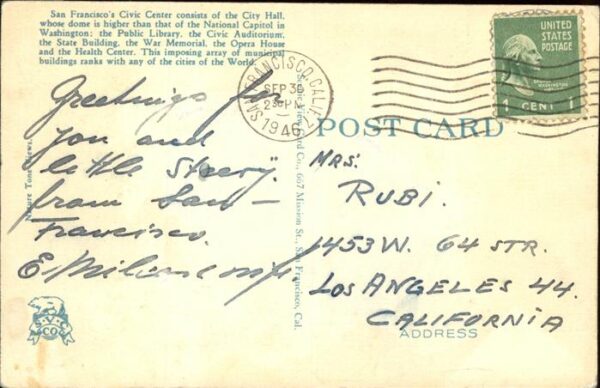 San Francisco's Civic Center consists of the City Hall,
whose dome is higher than that of the National Capitol in
Washington; the Public Library, the Civic Auditorium,
the State Building, the War Memorial, the Opera House
and the Health Center. This imposing array of municipal
buildings ranks with any of the cities of the World.
Greetings for
you and
little
from San-
Francisco.
Nature Tone Views.
CO
View Card Co., 667 Mission St., San Francisco, Cal.
SAN FRANCISCO, CALIF.
SEP 30
230 PM
1946
UNITED
STATES
POSTAGE
WASHINGTON
1 CENT 1
POST CARD
MRS:
RUBI.
1453 W. 64 STR.
LOS ANGELES 44.
CALIFORNIA
ADDRESS